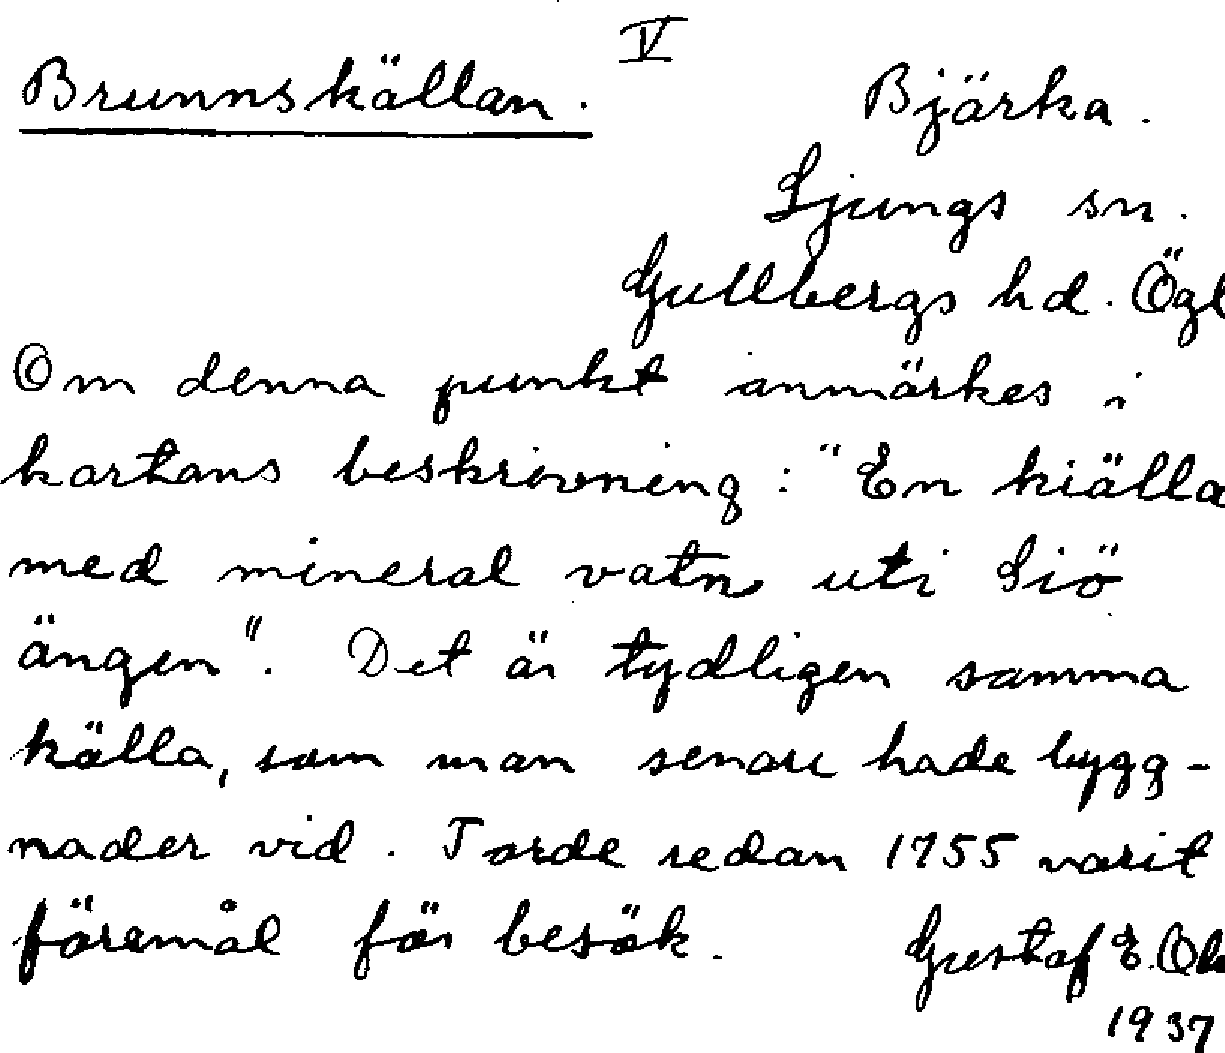 V
Brunnskällan. Bjärka.
Ljungs sn.
Gullbergs hd. Ögl
Om denna punkt anmärkes i
kartans beskrivning: "En kiälla
med mineral vatn uti Siö
ängen". Det är tydligen samma
källa, som man senare hade bygg-
nader vid. Torde redan 1755 varit
föremål för besök. Gustaf E.
1937